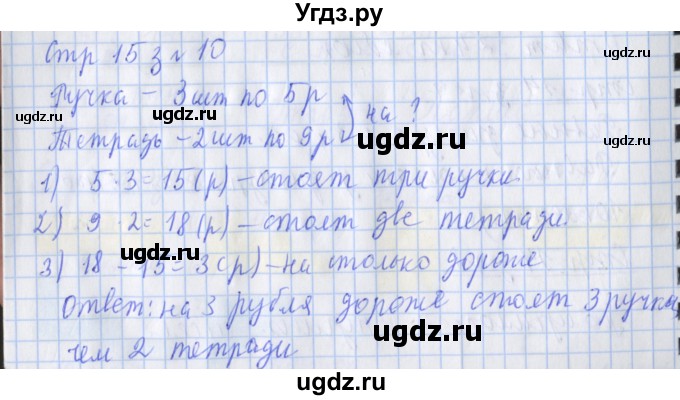 Угдз.ру
Стр 15 з № 10
Ручка – 3 шт по 5 р
Тетрадь – 2 шт по 9 р на ?
1) 5 · 3 = 15 (р) – стоят три ручки.
2) 9 · 2 = 18 (р) – стоят две тетради.
3) 18 – 15 = 3 (р) – на столько дороже
Ответ: на 3 рубля дороже стоят 3 ручки
чем 2 тетради
ugdz.ru
ugdz.ru
ugdz.ru
ugdz.ru
ugdz.ru
ugdz.ru
ugdz.ru
ugdz.ru
ugdz.ru